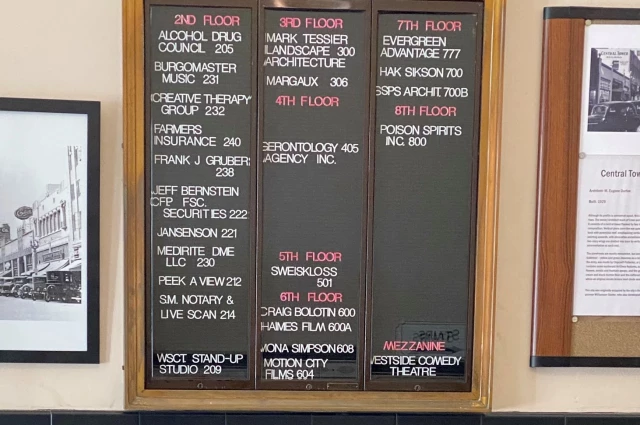 2ND FLOOR
ALCOHOL DRUG
COUNCIL 205
BURGOMASTER
MUSIC 231
CREATIVE THERAPY
GROUP 232
FARMERS
INSURANCE 240
FRANK J GRUBER
238
JEFF BERNSTEIN
CFP FSC.
SECURITIES 222
JANSENSON 221
MEDIRITE DME
LLC 230
PEEK A VIEW 212
S.M. NOTARY &
LIVE SCAN 214
WSCT STAND-UP
STUDIO 209
3RD FLOOR
MARK TESSIER
LANDSCAPE 300
ARCHITECTURE
MARGAUX 306
4TH FLOOR
GERONTOLOGY 405
AGENCY INC.
5TH FLOOR
SWEISKLOSS
501
6TH FLOOR
CRAIG BOLOTIN 600
HAIMES FILM 600A
MONA SIMPSON 608
MOTION CITY
FILMS 604
7TH FLOOR
EVERGREEN
ADVANTAGE 777
HAK SIKSON 700
SSPS ARCHIT. 700B
8TH FLOOR
POISON SPIRITS
INC. 800
MEZZANINE
WESTSIDE COMEDY
THEATRE
CENTRAL TOWER
Central Tow